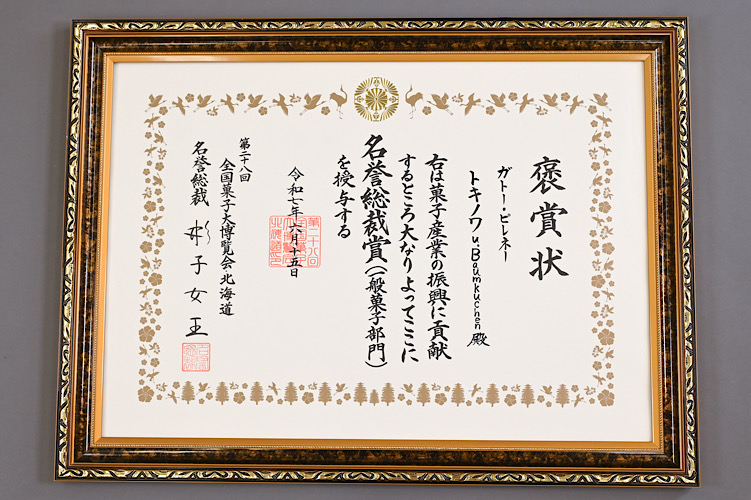 褒賞状
ガトー・ピレネー
トキノワ u.Baumkuchen 殿
右は菓子産業の振興に貢献
するところ大なりよってここに
名誉総裁賞(一般菓子部門)
を授与する
令和七年六月十五日
第二十八回
全国菓子大博覧会北海道
第二十八回
全国菓子大博覧会 北海道
名誉総裁 彬子女王